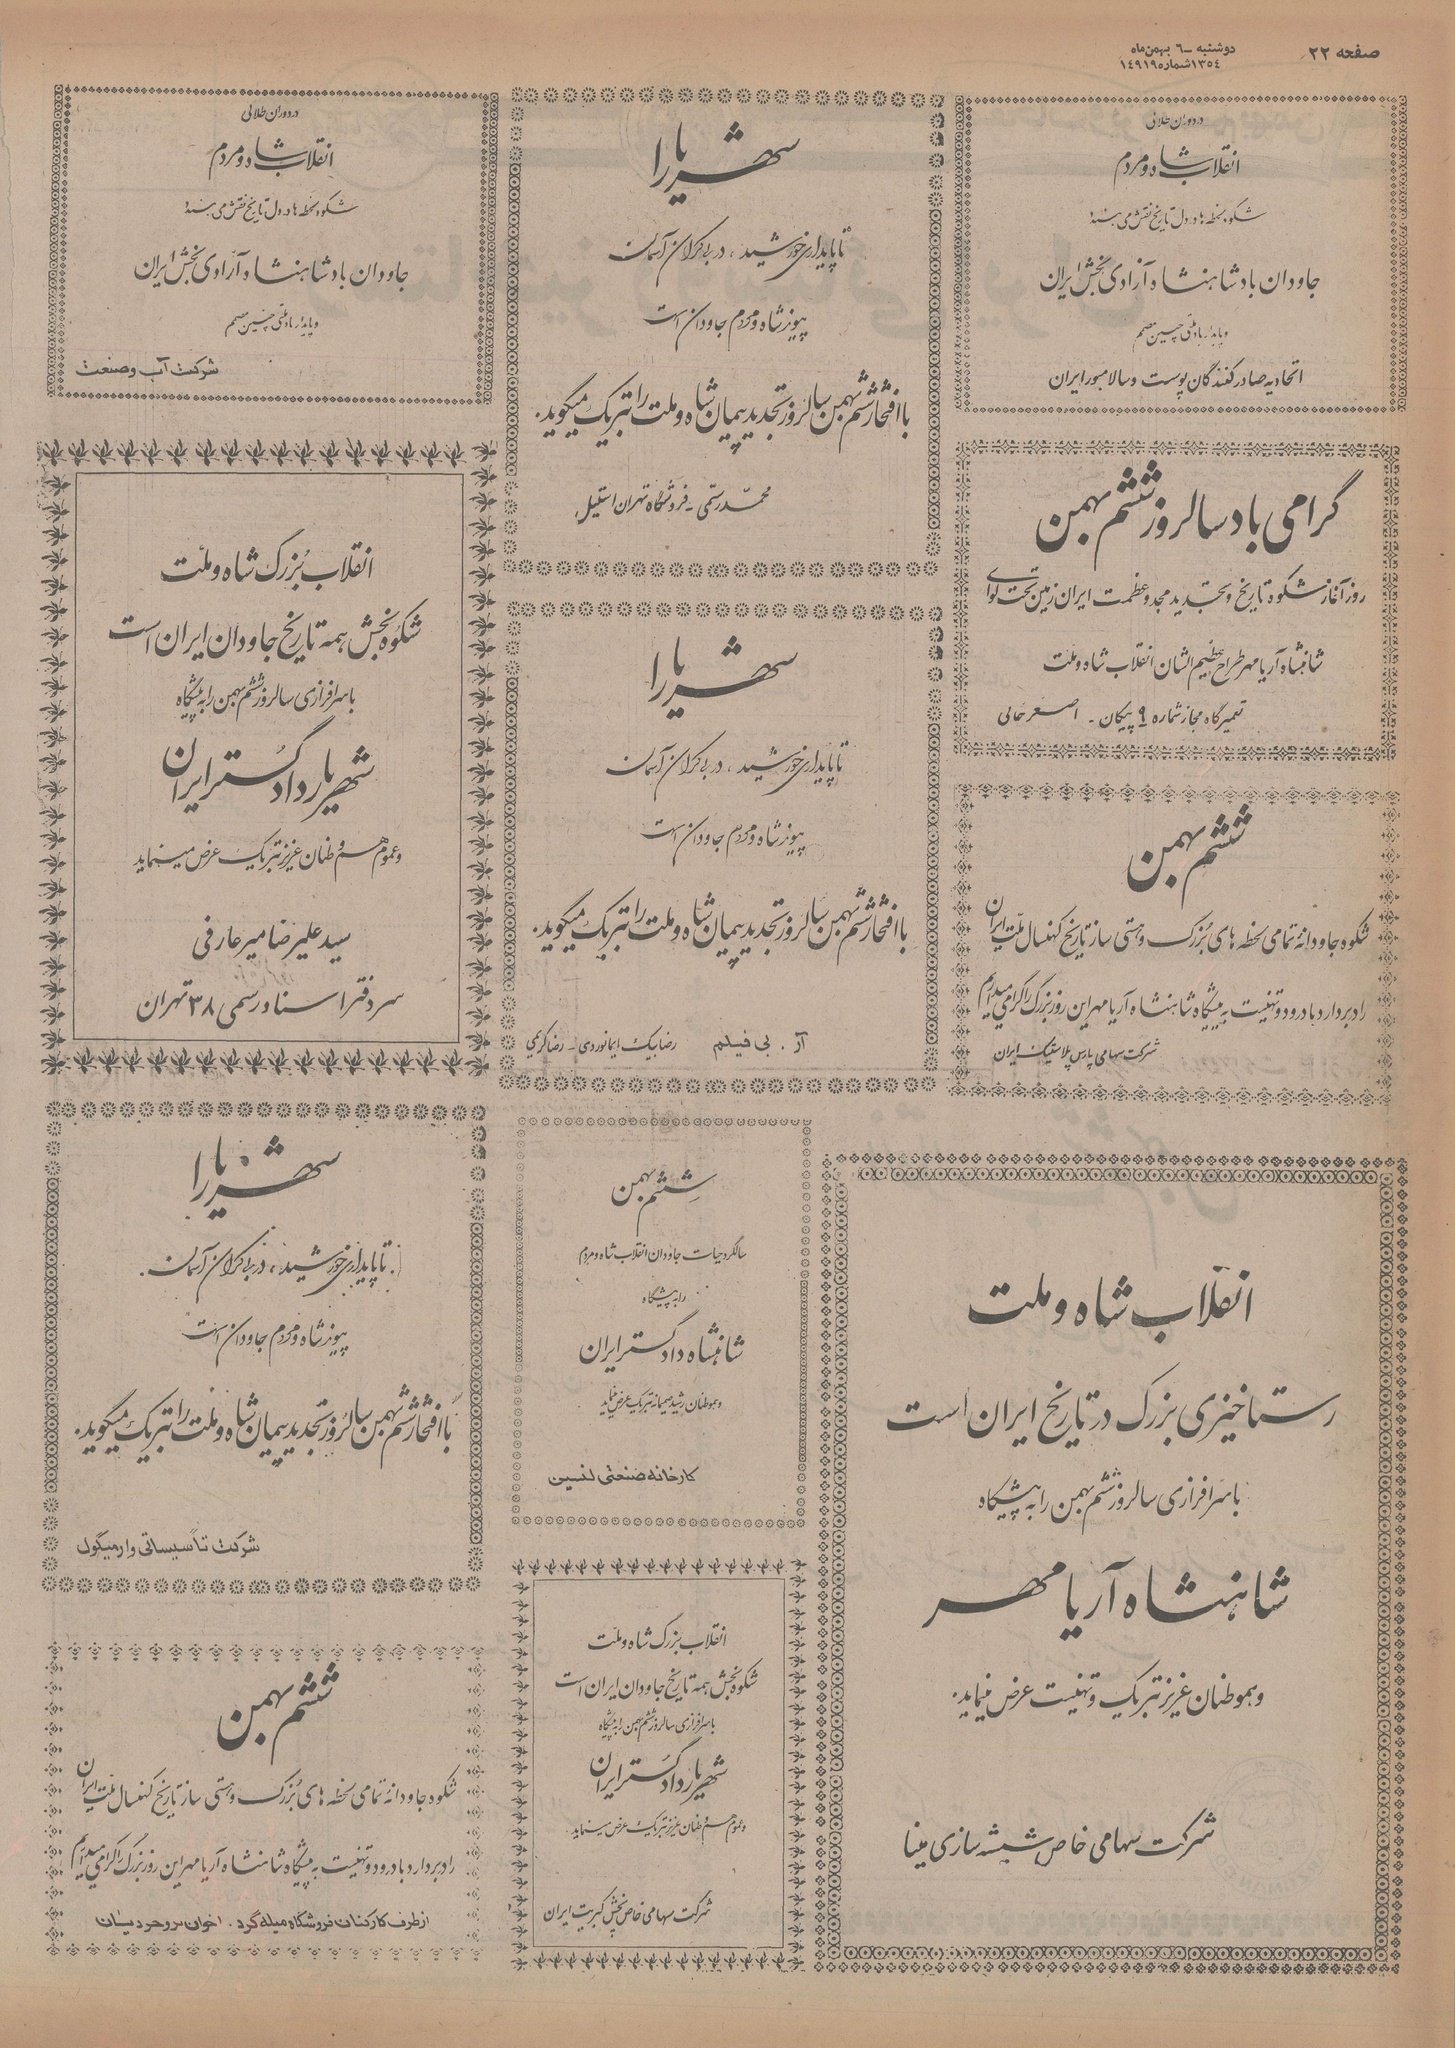 صفحه ۲۲
دوشنبه ـ ۶ بهمن ماه
۱۳۵۴ شماره ۱۴۹۱۹
در دوران طلائی
انقلاب شاه و مردم
شکوه لحظه ها در دل تاریخ نقش می بندد
جاودان باد شاهنشاه آزادی بخش ایران
و پایدار باد ملتی چنین مصمم
اتحادیه صادرکنندگان پوست و سالامبور ایران
گرامی باد سالروز ششم بهمن
روز آغاز شکوه تاریخ و تجدید مجد و عظمت ایران زمین تحت لوای
شاهنشاه آریامهر طراح عظیم الشان انقلاب شاه و ملت
تعمیرگاه مجاز شماره ۹ پیکان ـ اصغر حالی
ششم بهمن
شکوه جاودانهٔ تمامی لحظه های بزرگ و هستی ساز تاریخ کهنسال ملت ایران
را دربردارد با درود و تهنیت به پیشگاه شاهنشاه آریامهر این روز بزرگ را گرامی میداریم
شرکت سهامی پارس پلاستیک ایران
شهریارا
تا پایداری خورشید ، در بی کران آسمان
پیوند شاه و مردم جاودان است
با افتخار ششم بهمن سالروز تجدید پیمان شاه و ملت را تبریک میگوید.
محمد رستمی ـ فروشگاه تهران استیل
شهریارا
تا پایداری خورشید ، در بی کران آسمان
پیوند شاه و مردم جاودان است
با افتخار ششم بهمن سالروز تجدید پیمان شاه و ملت را تبریک میگوید.
آر . بی فیلم رضا بیک ایمانوردی ـ رضا کریمی
در دوران طلائی
انقلاب شاه و مردم
شکوه لحظه ها در دل تاریخ نقش می بندد
جاودان باد شاهنشاه آزادی بخش ایران
و پایدار باد ملتی چنین مصمم
شرکت آب و صنعت
انقلاب بزرگ شاه و ملت
شکوه بخش همه تاریخ جاودان ایران است
با سرافرازی سالروز ششم بهمن را به پیشگاه
شهریار دادگستر ایران
و عموم هم وطنان عزیز تبریک عرض مینماید
سید علیرضا میرعارفی
سردفتر اسناد رسمی ۳۸ تهران
انقلاب شاه و ملت
رستاخیزی بزرگ در تاریخ ایران است
با سرافرازی سالروز ششم بهمن را به پیشگاه
شاهنشاه آریامهر
و هموطنان عزیز تبریک و تهنیت عرض مینماید.
شرکت سهامی خاص شیشه سازی مینا
ششم بهمن
سالگرد حیات جاودان انقلاب شاه و مردم
را به پیشگاه
شاهنشاه دادگستر ایران
و هموطنان رشید صمیمانه تبریک عرض مینماید
کارخانه صنعتی لنسین
انقلاب بزرگ شاه و ملت
شکوه بخش همه تاریخ جاودان ایران است
با سرافرازی سالروز ششم بهمن را به پیشگاه
شهریار دادگستر ایران
و عموم هم وطنان عزیز تبریک عرض مینماید
شرکت سهامی خاص پخش کبریت ایران
شهریارا
تا پایداری خورشید ، در بی کران آسمان.
پیوند شاه و مردم جاودان است
با افتخار ششم بهمن سالروز تجدید پیمان شاه و ملت را تبریک میگوید.
شرکت تأسیساتی وارمیگول
ششم بهمن
شکوه جاودانهٔ تمامی لحظه های بزرگ و هستی ساز تاریخ کهنسال ملت ایران
را دربردارد با درود و تهنیت به پیشگاه شاهنشاه آریامهر این روز بزرگ را گرامی میداریم
از طرف کارکنان فروشگاه میله گرد . اخوان